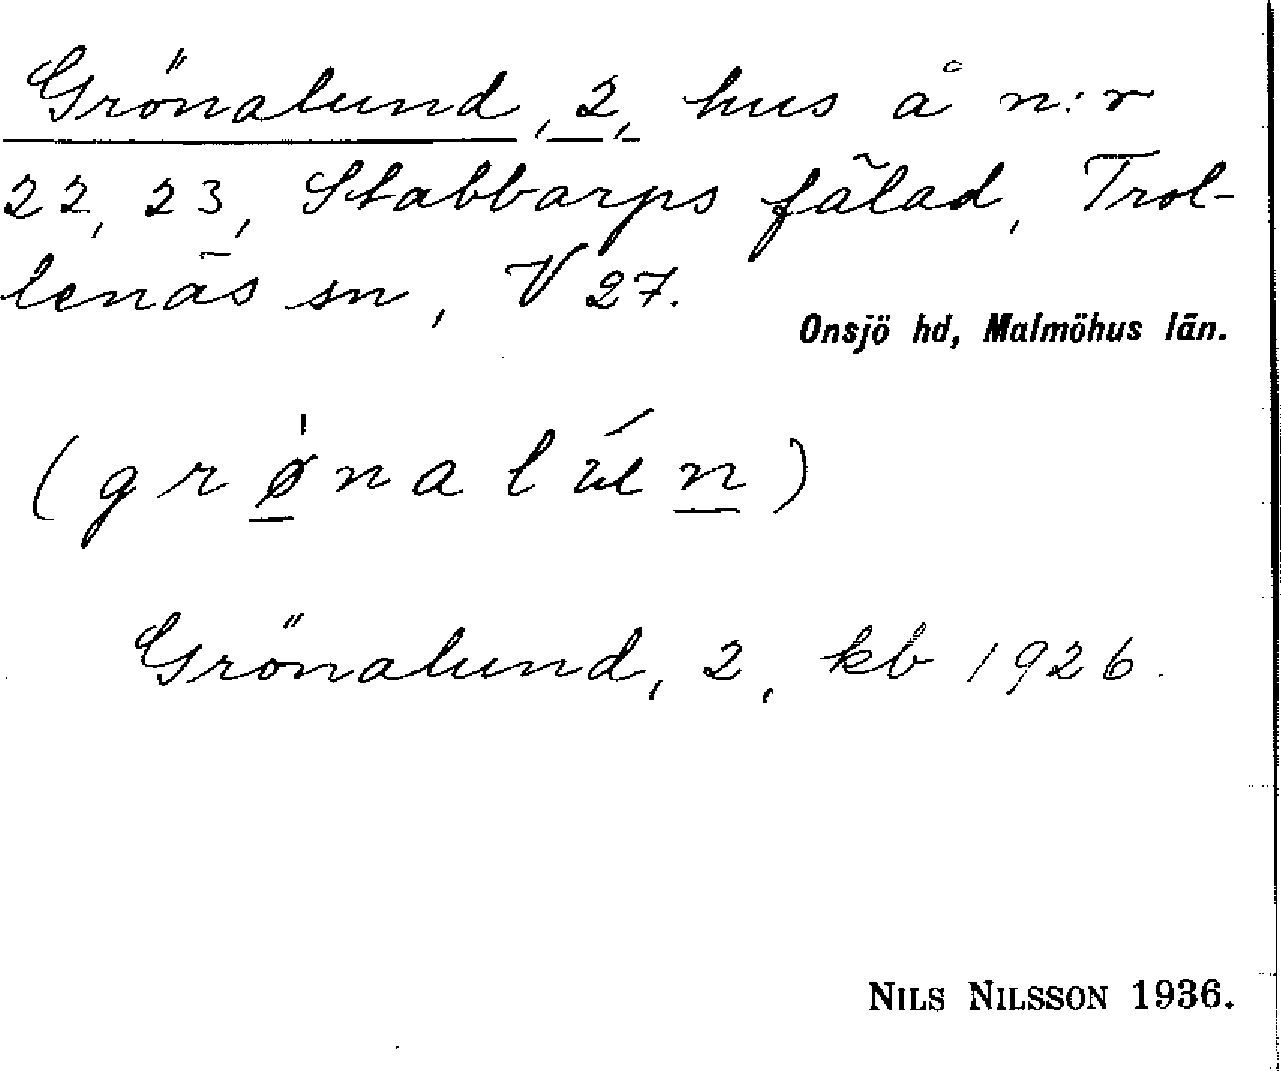 Grönalund, 2, hus å n:r
22, 23, Stabbarps fälad, Trol-
lenäs sn, V 27.
Onsjö hd, Malmöhus län.
(grø̲̍nalún̲)
Grönalund, 2, kb 1926.
NILS NILSSON 1936.